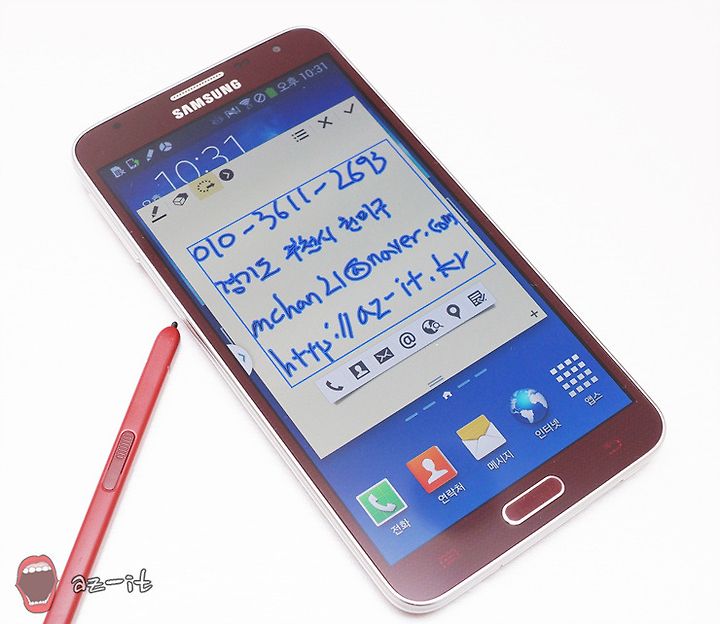 SAMSUNG
오후 10:31
10:31
010-3611-2693
경기도 부천시 원미구
mchan21@naver.com
http://az-it.kr
전화
연락처
메시지
인터넷
앱스
az-it